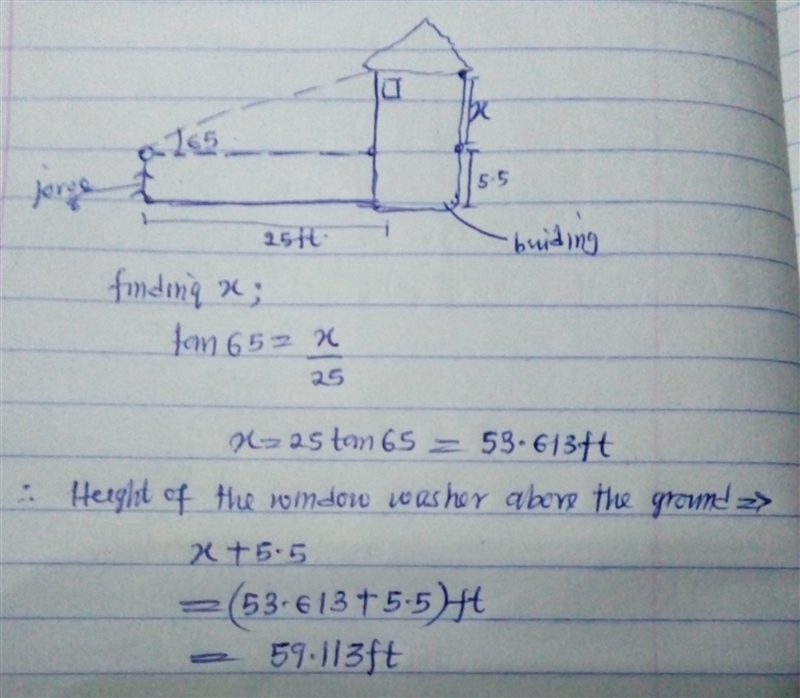 x
65
5.5
jorge
25ft.
buiding
finding x;
tan 65 = x/25
x = 25 tan 65 = 53.613ft
∴ Height of the window washer above the ground ⇒
x + 5.5
= (53.613 + 5.5) ft
= 59.113ft